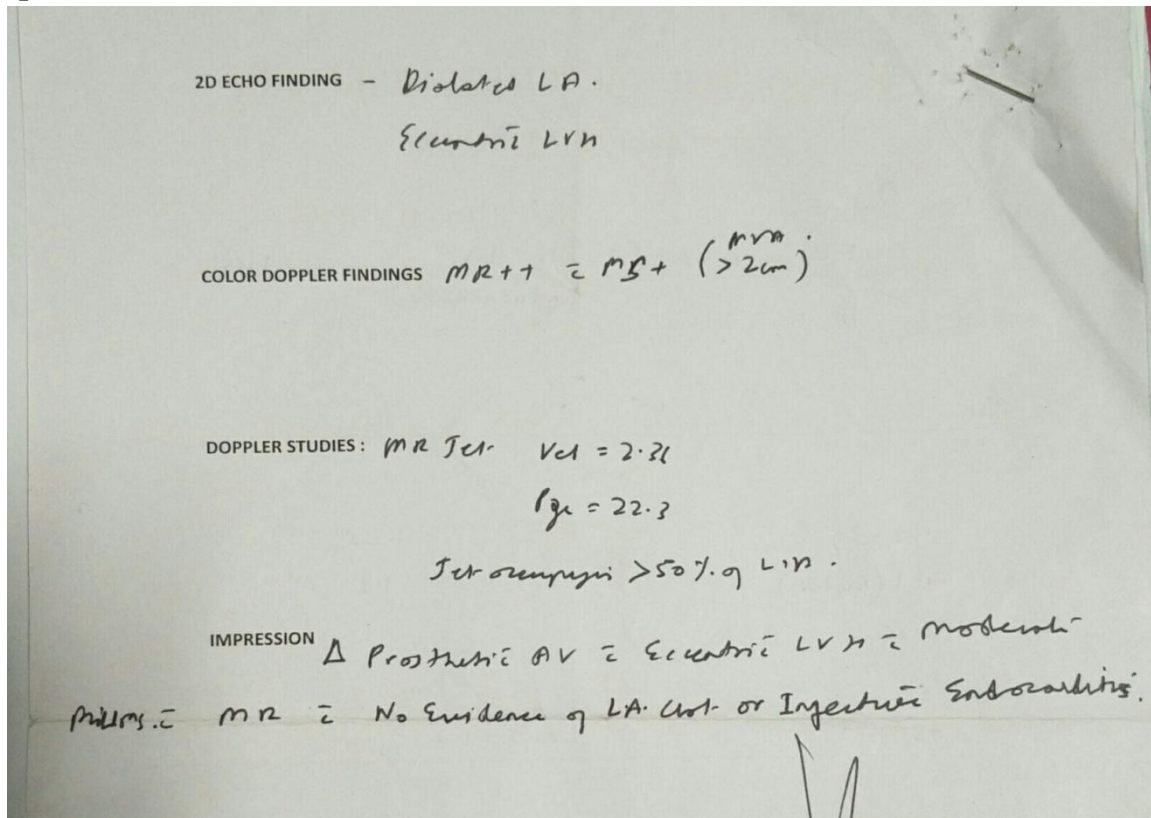 2D ECHO FINDING - Dialated LA.
Eccentric LVH
COLOR DOPPLER FINDINGS MR++ c̄ MS+ (MVA >2cm)
DOPPLER STUDIES : MR Jet Vel = 2.36
Pge = 22.3
Jet occupying >50% of LA.
IMPRESSION Δ Prosthetic AV c̄ Eccentric LVH c̄ moderate
Mild MS. c̄ MR c̄ No Evidence of LA. Clot or Infective Endocarditis.